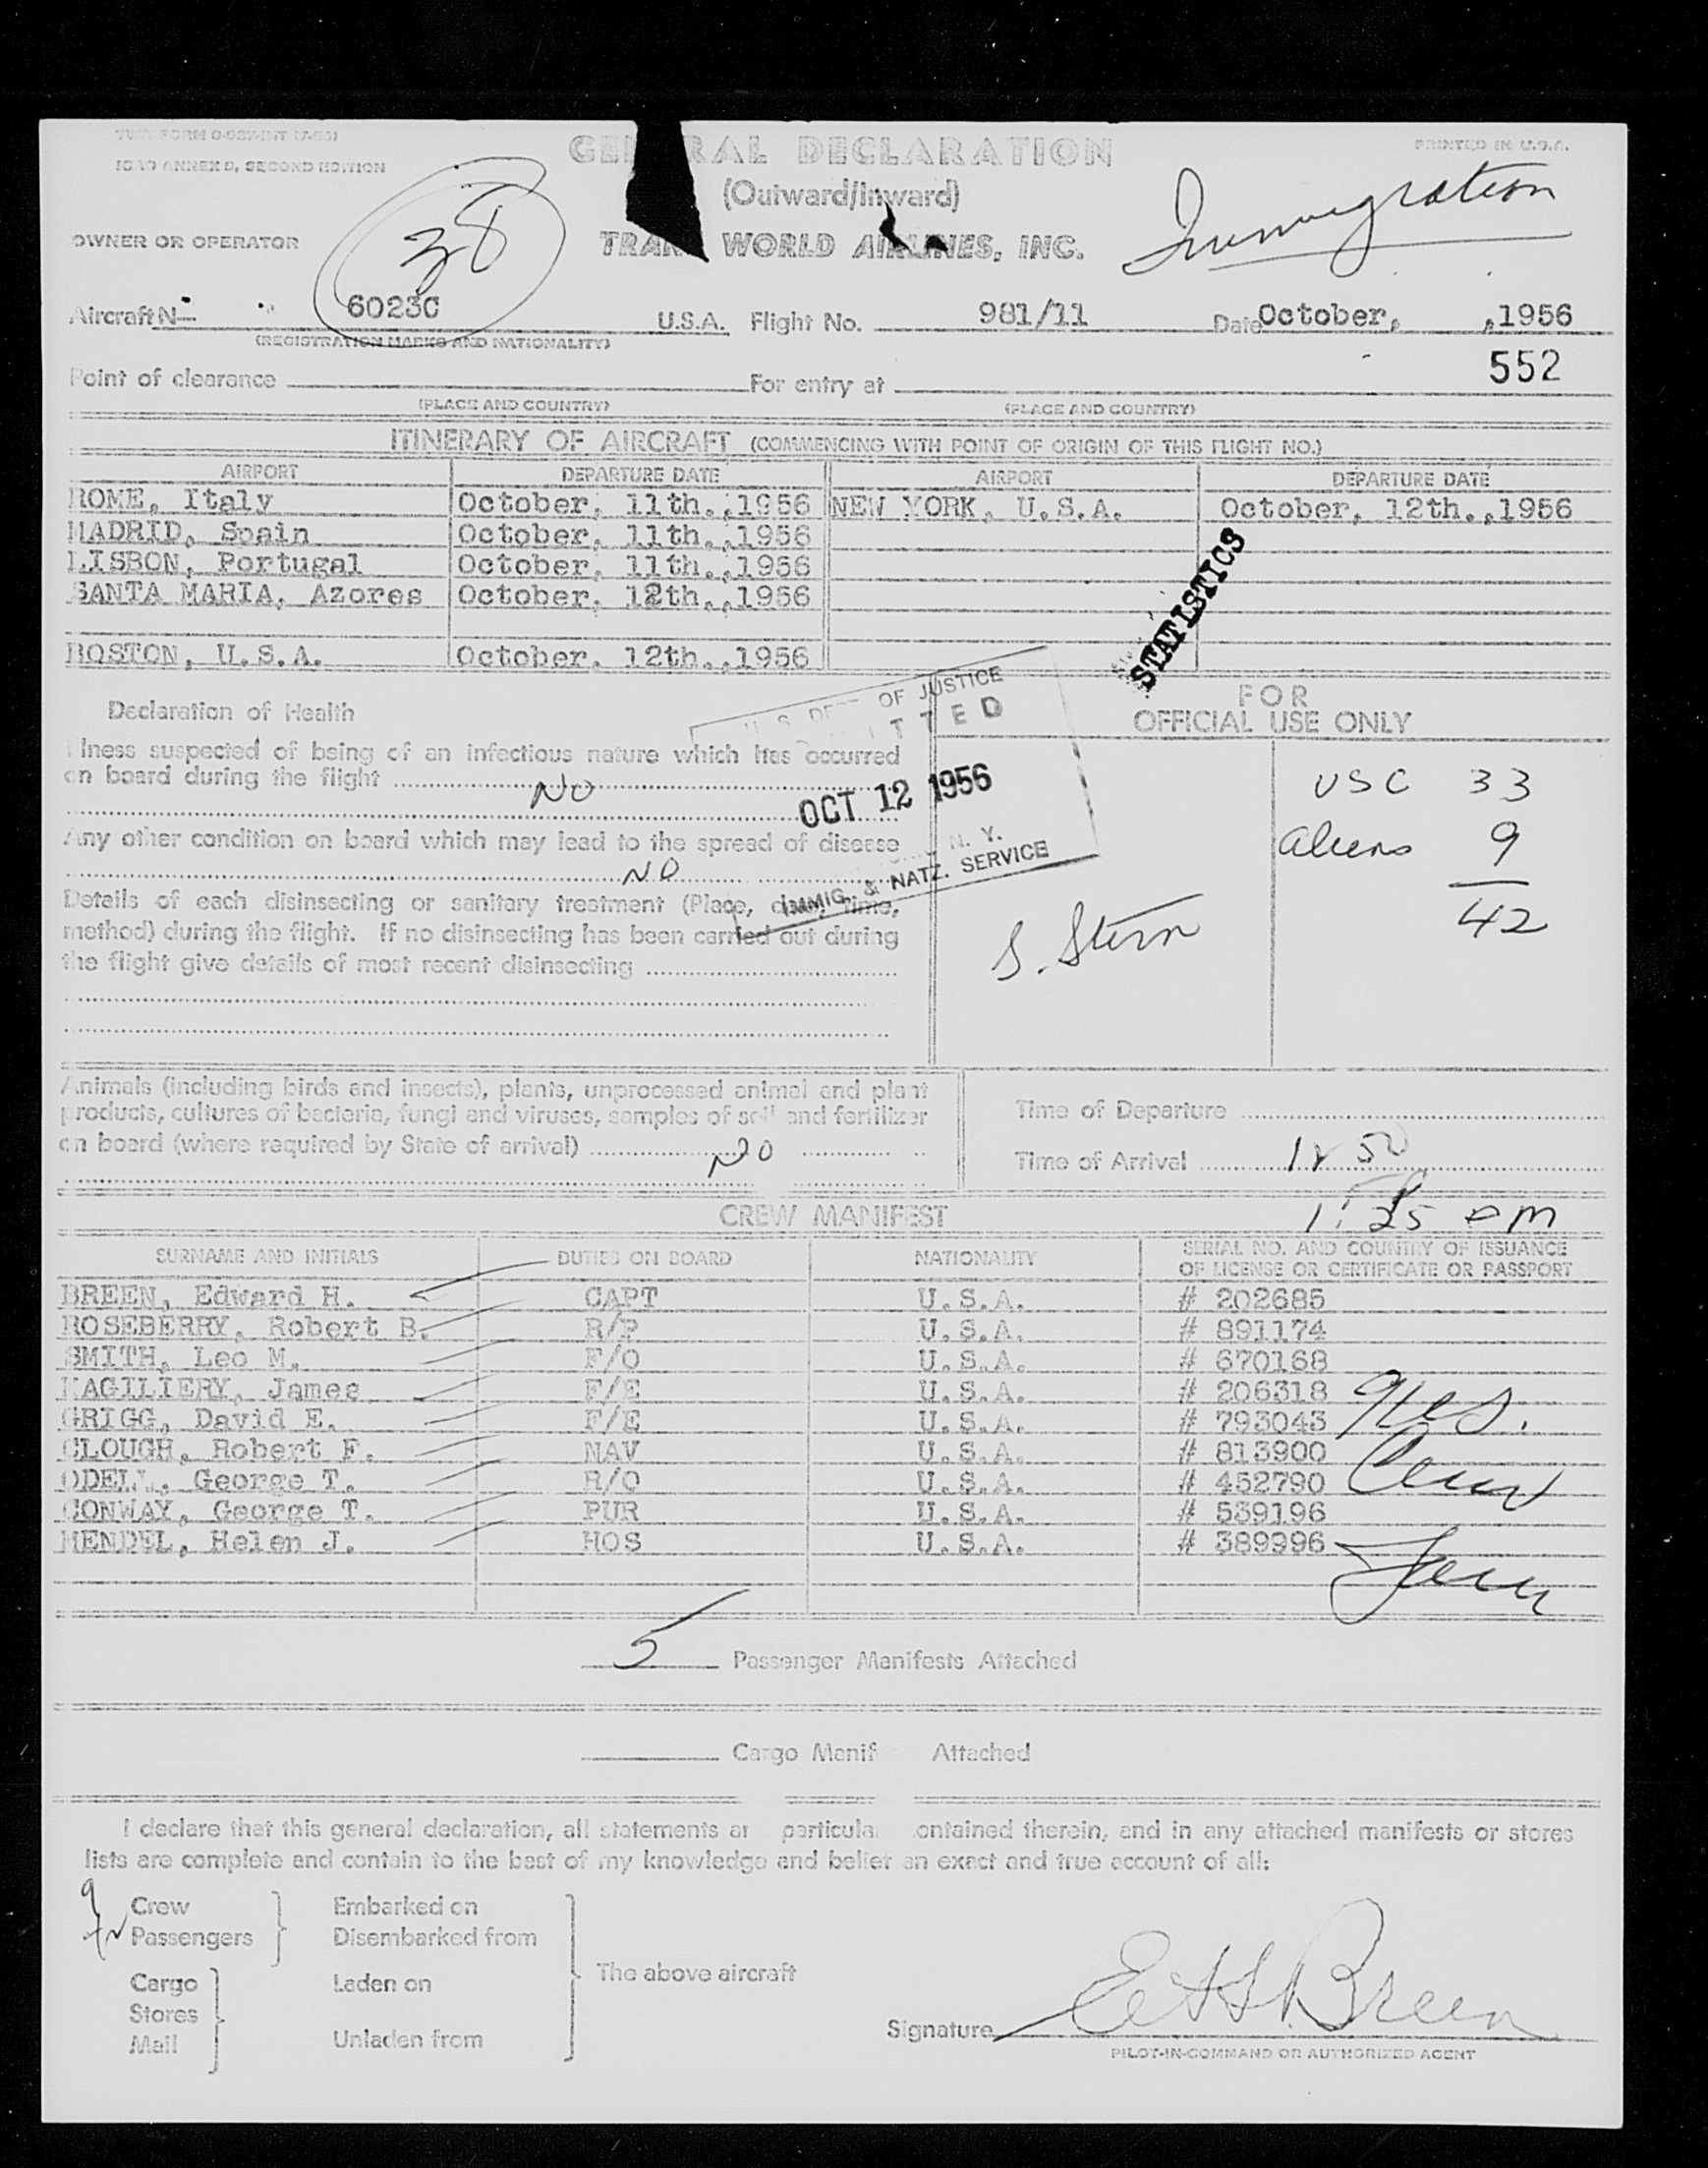 TWA FORM
ICAO ANNEX 9, SECOND EDITION
PRINTED IN U.S.A.
GE RAL DECLARATION
(Outward/Inward)
Immigration
38
OWNER OR OPERATOR
TRAN WORLD AIRLINES, INC.
Aircraft N- 6023C U.S.A. Flight No. 981/11 Date October, ,1956
(REGISTRATION MARKS AND NATIONALITY)
552
Point of clearance For entry at
(PLACE AND COUNTRY) (PLACE AND COUNTRY)
ITINERARY OF AIRCRAFT (COMMENCING WITH POINT OF ORIGIN OF THIS FLIGHT NO.)
AIRPORT DEPARTURE DATE AIRPORT DEPARTURE DATE
ROME, Italy October, 11th.,1956 NEW YORK, U.S.A. October, 12th.,1956
MADRID, Spain October, 11th.,1956
LISBON, Portugal October, 11th.,1956
SANTA MARIA, Azores October, 12th.,1956
BOSTON, U.S.A. October, 12th.,1956
STATISTICS
Declaration of Health
FOR
OFFICIAL USE ONLY
U. S. DE OF JUSTICE
ITTED
OCT 12 1956
N. Y.
IMMIG. & NATZ. SERVICE
lness suspected of being of an infectious nature which has occurred
on board during the flight
NO
Any other condition on board which may lead to the spread of disease
NO
Details of each disinsecting or sanitary treatment (Place, date, time,
method) during the flight. If no disinsecting has been carried out during
the flight give details of most recent disinsecting
USC 33
aliens 9
42
S. Stern
Animals (including birds and insects), plants, unprocessed animal and plant
products, cultures of bacteria, fungi and viruses, samples of soil and fertilizer
on board (where required by State of arrival) NO
Time of Departure
Time of Arrival 12 50
1:25 pm
CREW MANIFEST
SURNAME AND INITIALS DUTIES ON BOARD NATIONALITY SERIAL NO. AND COUNTRY OF ISSUANCE
OF LICENSE OR CERTIFICATE OR PASSPORT
BREEN, Edward H. CAPT U.S.A. # 202685
ROSEBERRY, Robert B. R/P U.S.A. # 891174
SMITH, Leo M. F/O U.S.A. # 670168
KAGILIERY, James F/E U.S.A. # 206318
GRIGG, David E. F/E U.S.A. # 793043
CLOUGH, Robert F. NAV U.S.A. # 813900
ODELL, George T. R/O U.S.A. # 452790
CONWAY, George T. PUR U.S.A. # 539196
MENDEL, Helen J. HOS U.S.A. # 389996
5 Passenger Manifests Attached
Cargo Manif Attached
I declare that this general declaration, all statements ar particula ontained therein, and in any attached manifests or stores
lists are complete and contain to the best of my knowledge and belief an exact and true account of all:
9 Crew Embarked on
42 Passengers Disembarked from
The above aircraft
Cargo Laden on
Stores
Mail Unladen from
Signature EH Breen
PILOT-IN-COMMAND OR AUTHORIZED AGENT